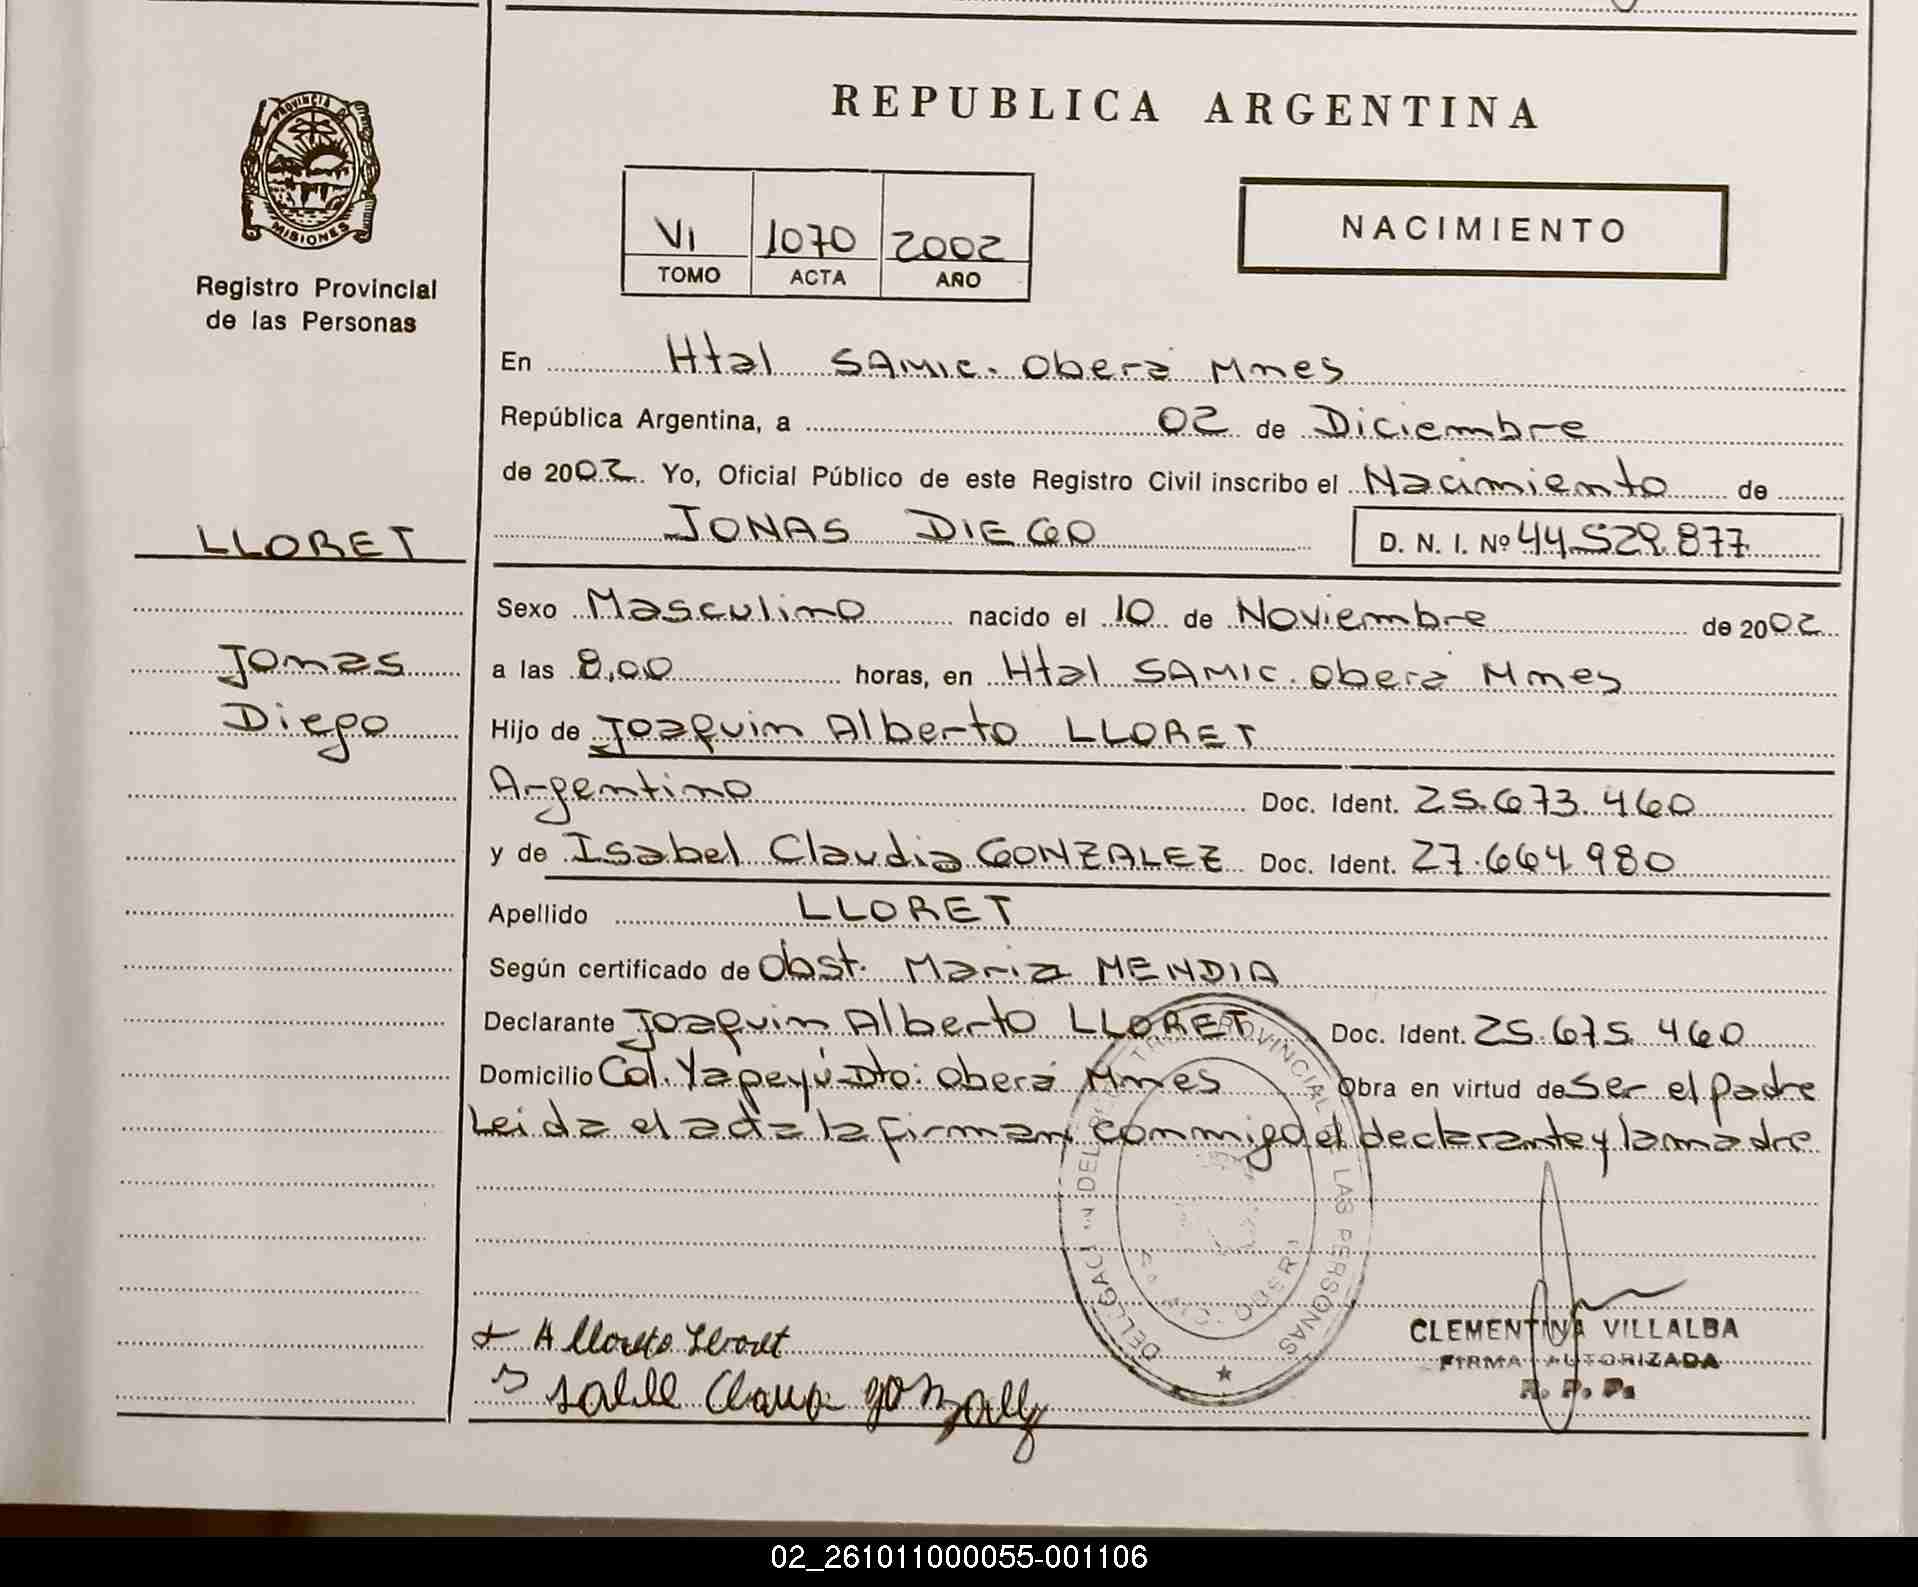 REPUBLICA ARGENTINA
PROVINCIA DE
MISIONES
Registro Provincial
de las Personas
VI 1070 2002
TOMO ACTA AÑO
NACIMIENTO
En Htal SAMIC. Oberá Mnes
República Argentina, a 02 de Diciembre
de 2002. Yo, Oficial Público de este Registro Civil inscribo el Nacimiento de
JONAS DIEGO D. N. I. Nº 44.529.877
LLORET
Jonas
Diego
Sexo Masculino nacido el 10 de Noviembre de 2002
a las 8,00 horas, en Htal SAMIC. Oberá Mnes
Hijo de Joaquin Alberto LLORET
Argentino Doc. Ident. 25.673.460
y de Isabel Claudia GONZALEZ Doc. Ident. 27.664.980
Apellido LLORET
Según certificado de Obst. Maria MENDIA
Declarante Joaquin Alberto LLORET Doc. Ident. 25.675.460
Domicilio Col. Yapeyú-Dto. Oberá Mnes Obra en virtud de Ser el padre
Leida el acta la firman conmigo el declarante y la madre
PROVINCIAL LAS PERSONAS
CLEMENTINA VILLALBA
FIRMA AUTORIZADA
R. P. P.
02_261011000055-001106